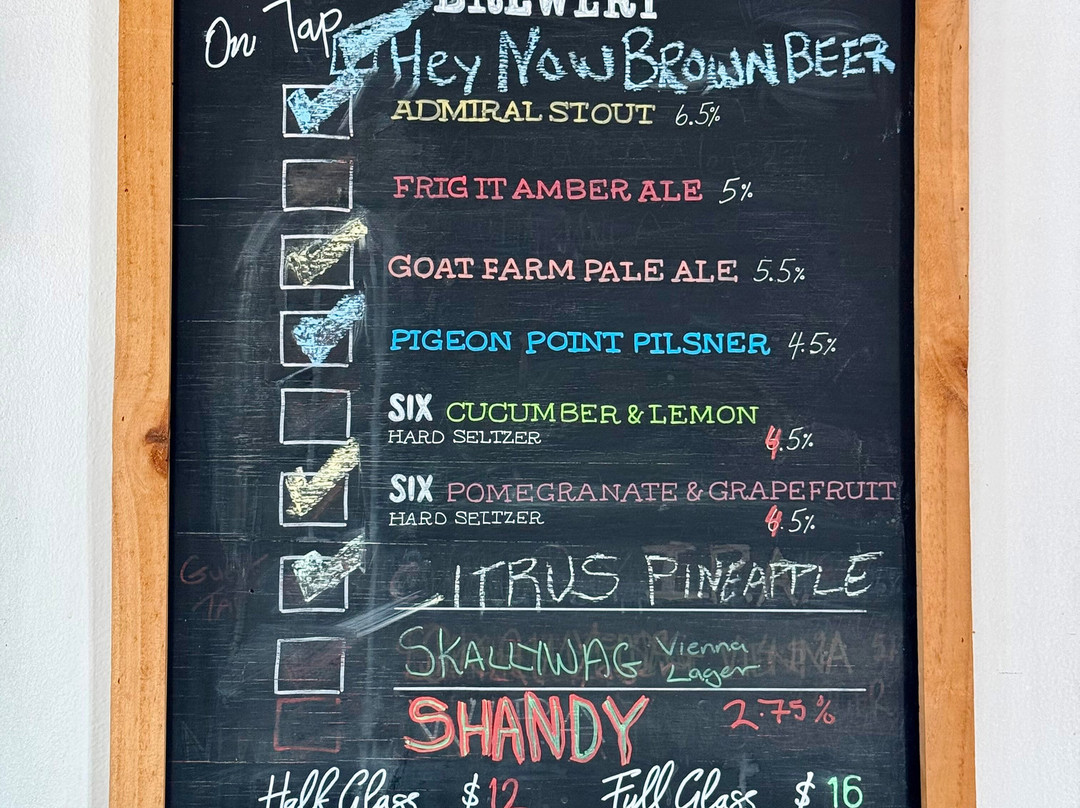 BREWERY
On Tap
Hey Now BROWN BEER
ADMIRAL STOUT 6.5%
FRIGIT AMBER ALE 5%
GOAT FARM PALE ALE 5.5%
PIGEON POINT PILSNER 4.5%
SIX CUCUMBER & LEMON
HARD SELTZER
4.5%
SIX POMEGRANATE & GRAPEFRUIT
HARD SELTZER
4.5%
CITRUS PINEAPPLE
SKALLYWAG Vienna Lager
SHANDY 2.75%
Half Glass $12 Full Glass $16